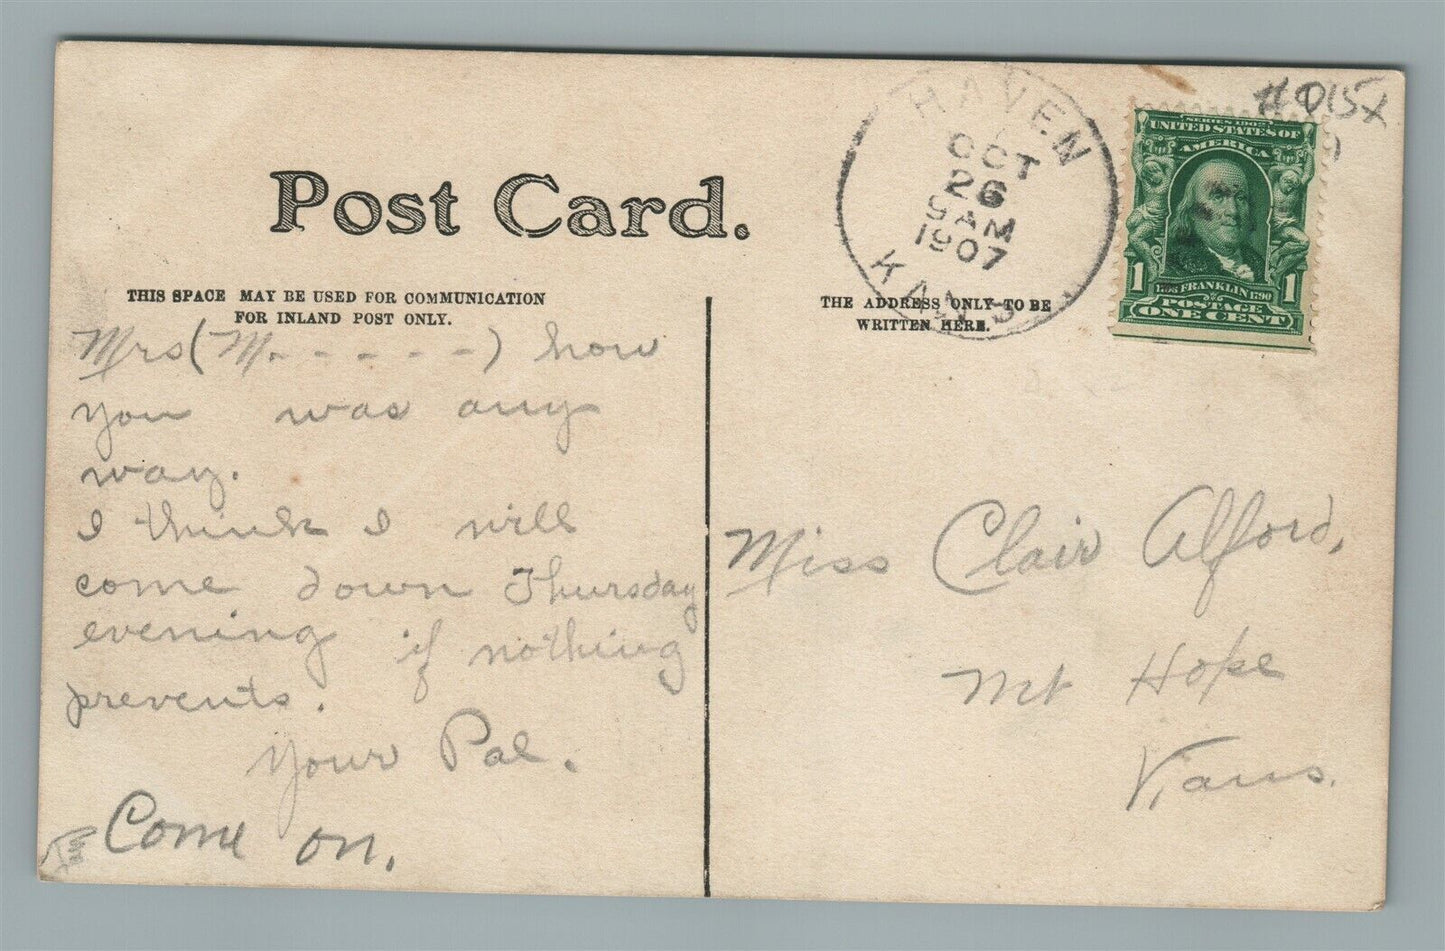 Post Card.
THIS SPACE MAY BE USED FOR COMMUNICATION
FOR INLAND POST ONLY.
Mrs (M. - - - - -) how
you was any
way.
I think I will
come down Thursday
evening if nothing
prevents.
Your Pal.
Come on.
HAVEN
OCT
26
9 AM
1907
KANS
SERIES 1902
UNITED STATES OF
AMERICA
1 1
1706 FRANKLIN 1790
POSTAGE
ONE CENT
THE ADDRESS ONLY TO BE
WRITTEN HERE.
Miss Clair Alford,
Mt Hope
Kans.